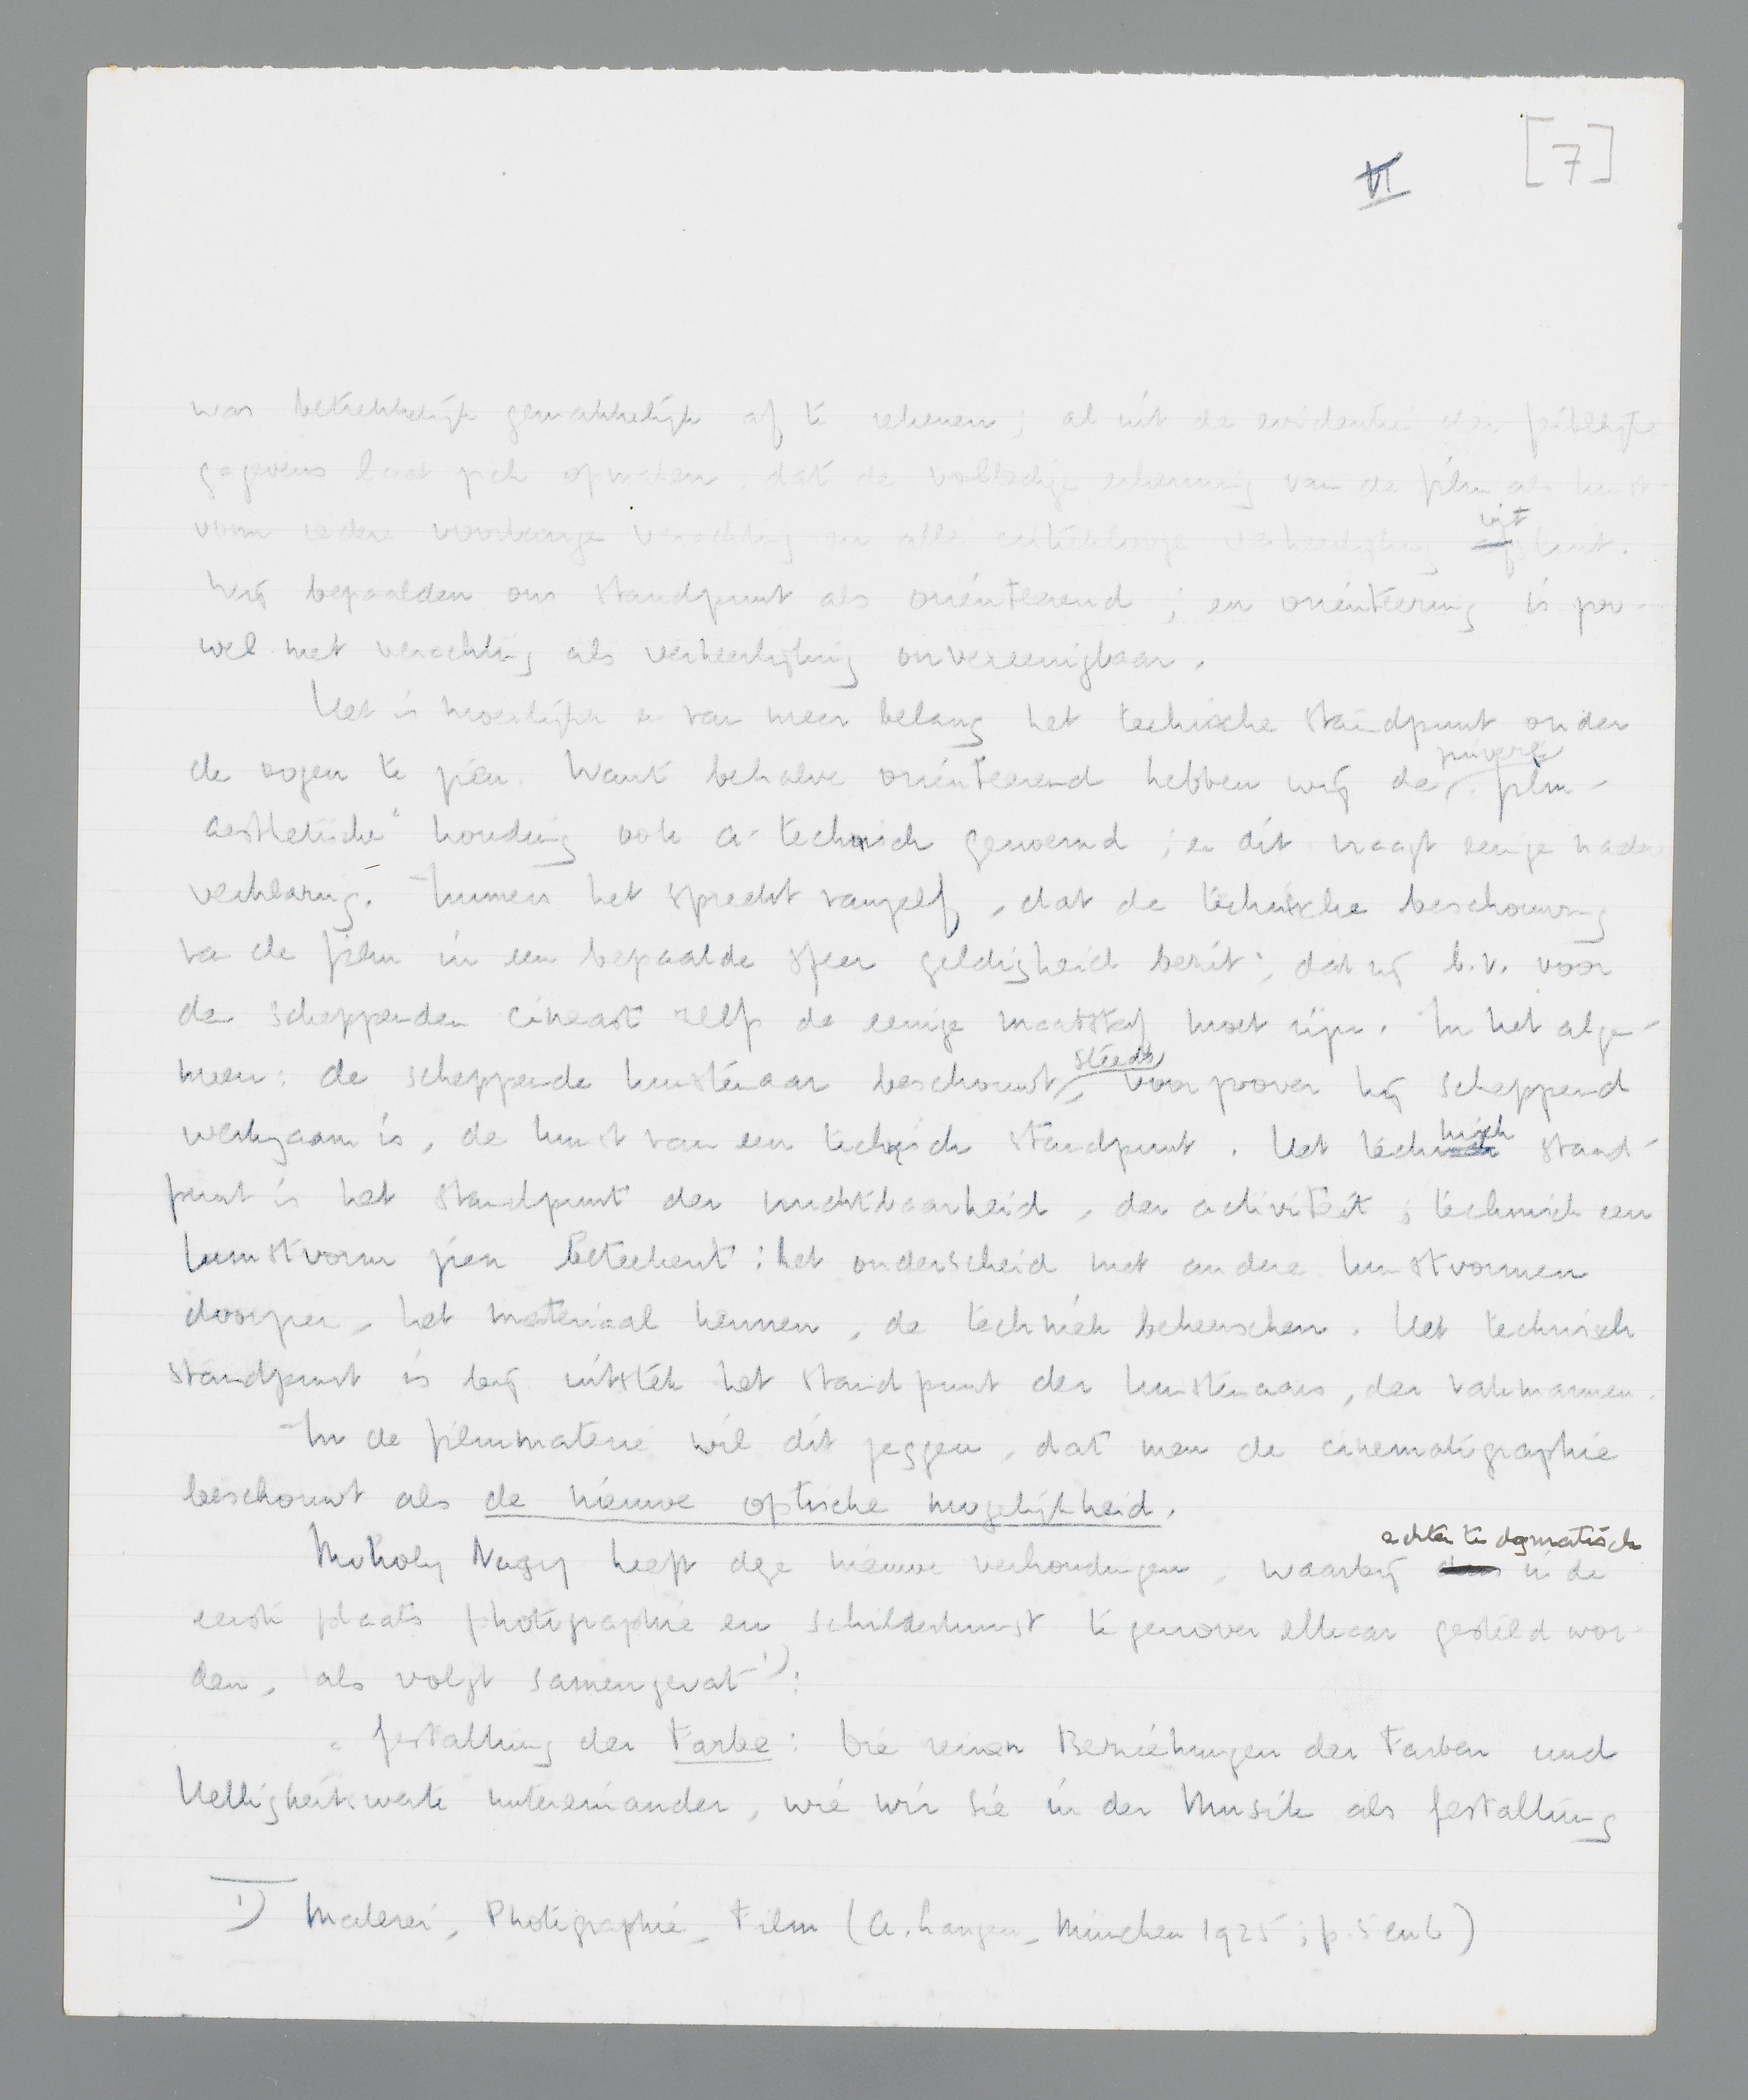 [7]
VI
was betrekkelijk gemakkelijk af te rekenen; al uit de evidentie der feitelijke
gegevens laat zich opmaken, dat de volledige erkenning van de film als kunst-
vorm iedere voorbarige verachting en alle critieklooze verheerlijking uitsluit.
Wij bepaalden ons standpunt als oriënteerend; en oriënteering is zoo-
wel met verachting als verheerlijking onvereenigbaar.
Het is moeilijker en van meer belang het technische standpunt onder
de oogen te zien. Want behalve oriënteerend hebben wij de „zuivere film-
aesthetische" houding ook a-technisch genoemd; en dit vraagt eenige nadere
verklaring. Immers het spreekt vanzelf, dat de technische beschouwing
van de film in een bepaalde sfeer geldigheid bezit; dat zij b.v. voor
den scheppenden cineast zelfs de eenige maatstaf moet zijn. In het alge-
meen: de scheppende kunstenaar beschouwt steeds, voor zoover hij scheppend
werkzaam is, de kunst van een technisch standpunt. Het technisch stand-
punt is het standpunt der vruchtbaarheid, der activiteit; technisch een
kunstvorm zien beteekent: het onderscheid met andere kunstvormen
doorzien, het materiaal kennen, de techniek beheerschen. Het technisch
standpunt is bij uitstek het standpunt der kunstenaars, der vakmannen.
In de filmmaterie wil dit zeggen, dat men de cinematographie
beschouwt als de nieuwe optische mogelijkheid.
Moholy Nagy heeft deze nieuwe verhoudingen, waarbij echter te dogmatisch in de
eerste plaats photographie en schilderkunst tegenover elkaar gesteld wor-
den, als volgt samengevat 1):
„Gestaltung der Farbe: Die reinen Beziehungen der Farben und
Helligkeitswerte untereinander, wie wir sie in der Musik als Gestaltung
1) Malerei, Photographie, Film (A. Langen, München 1925; p. 5 en 6)